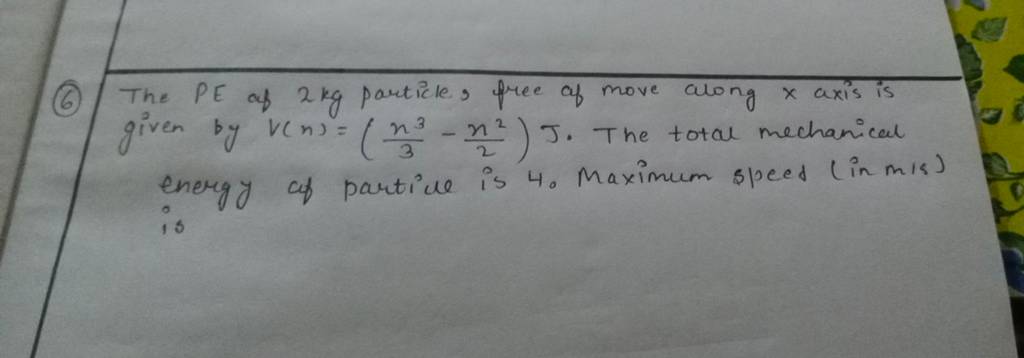 6 The PE of 2kg particle, free of move along x axis is
given by V(n) = (n³/3 - n²/2) J. The total mechanical
energy of particle is 4. Maximum speed (in m/s)
is